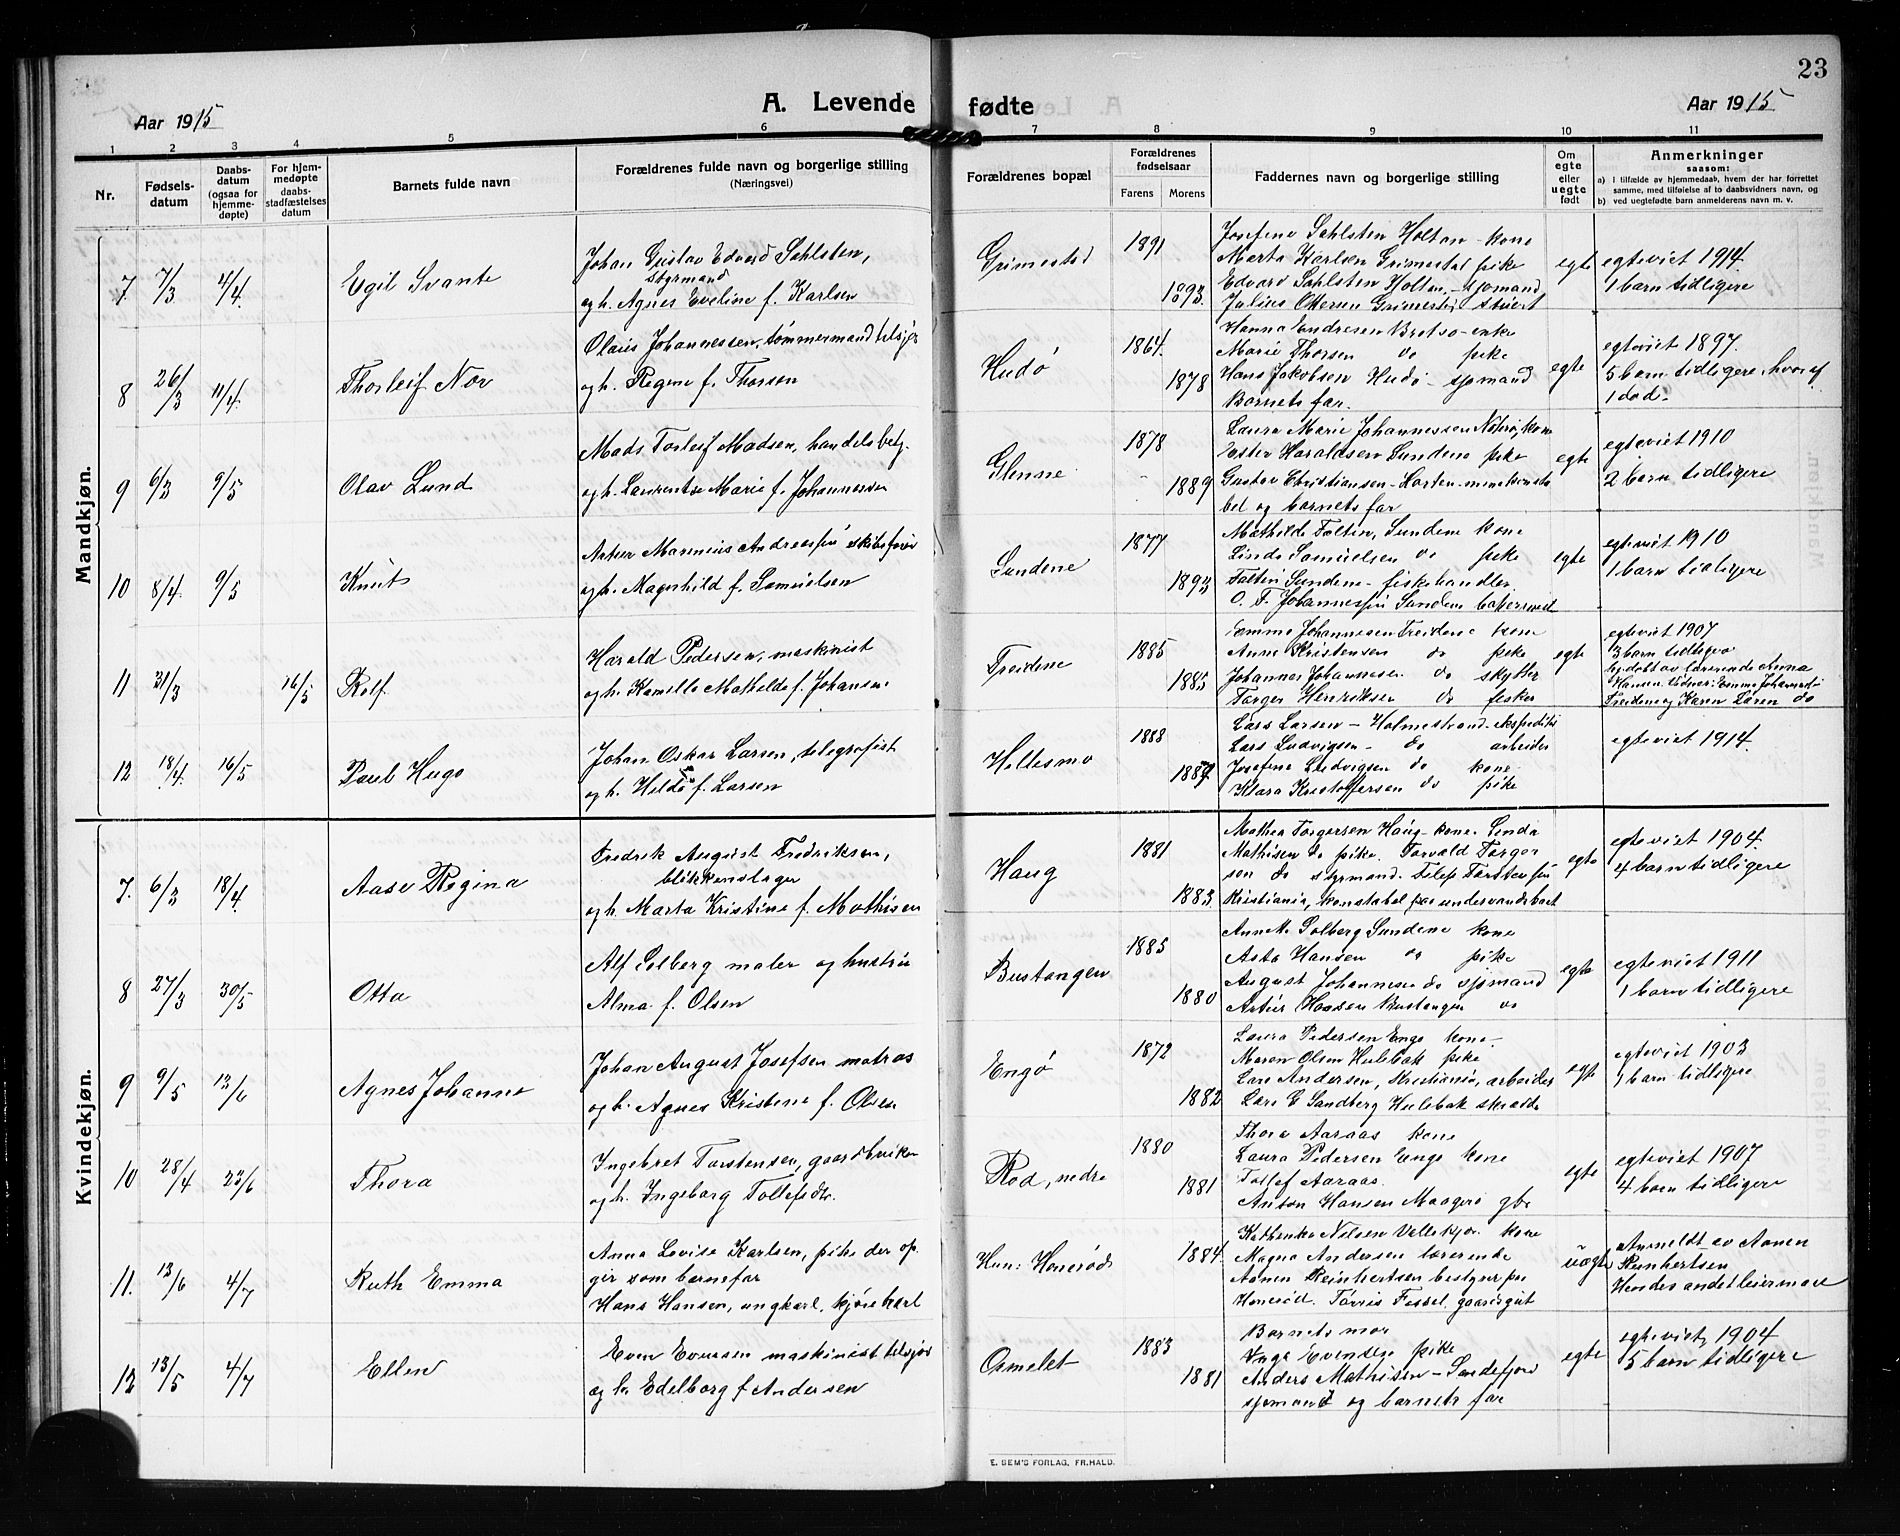 23
A. Levende fødte
Aar 1915
Aar 1915
1 2 3 4 5 6 7 8 9 10 11
Nr.
Fødsels-
datum
Daabs-
datum
(ogsaa for
hjemme-
døpte)
For hjem-
medøpte
daabs-
stadfæstelses
datum
Barnets fulde navn
Forældrenes fulde navn og borgerlige stilling
(Næringsvei)
Forældrenes bopæl
Forældrenes
fødselsaar
Farens Morens
Faddernes navn og borgerlige stilling
Om
egte
eller
uegte
født
Anmerkninger
saasom:
a) i tilfælde av hjemmedaab, hvem der har forrettet
samme, med tilføielse af to daabsvidners navn, og
b) ved uegtefødte barn anmelderens navn m. v.
Mandkjøn.
7 7/3 4/4 Egil Svante
Johan Gustav Edvard Sahlsten,
styrmand
og h. Agnes Eveline f. Karlsen
Grimestad
1891
1893
Josefine Sahlsten Holtan - kone
Marta Karlsen Grimestad pike
Edvard Sahlsten Holten - sjømand
Julius Ottersen Grimestad stuert
egte
egteviet 1914.
1 barn tidligere
8 26/3 11/4 Thorleif Nor
Olaus Johannessen, tømmermand tilsjøs
og h. Regine f. Thorsen
Hudø
1864
1878
Hanna Andresen Bretsø - enke
Marie Thorsen do pike
Hans Jakobsen Hudø - sjømand
Barnets far.
egte
egteviet 1897.
5 barn tidligere, hvoraf
1 død.
9 6/3 9/5 Olav Lund
Mads Torleif Madsen, handelsbetj.
og h. Laurentse Marie f. Johannessen
Glenne
1878
1889
Laura Marie Johannessen Nøterø, kone
Ester Haraldsen Sundene pike
Gustav Christiansen - Horten - minekonsta
bel og barnets far
egte
egteviet 1910
2 barn tidligere
10 8/4 9/5 Knut
Artur Marinius Andreassen skibsfører
og h. Magnhild f. Samuelsen
Sundene
1877
1893
Mathilde Faltin, Sundene kone
Linda Samuelsen do pike
Faltin Sundene - fiskehandler
O. F. Johannessen Sundene bakersvend
egte
egteviet 1910
1 barn tidligere
11 31/3 16/5 Rolf
Harald Pedersen, maskinist
og h. Kamilla Mathilde f. Johansen
Treidene
1885
1885
Emma Johannesen Treidene kone
Anne Kristensen do pike
Johannes Johannesen do skytter
Torger Henriksen do fisker
egte
egteviet 1907
3 barn tidligere
hj.døbt av lærerinde Anna
Hansen. Vidner: Emma Johannesen
Treidene og Karen Loren do
12 18/4 16/5 Paul Hugo
Johan Oskar Larsen, telegrafist
og h. Hilda f. Larsen
Hellesmo
1888
1889
Lars Larsen - Holmestrand - ekspeditør
Lars Ludvigsen - do arbeider
Josefine Ludvigsen do kone
Klara Kristoffersen do pike
egteviet 1914.
Kvindekjøn.
7. 6/3 18/4 Aase Regina
Fredrik August Fredriksen,
blikkenslager
og h. Marta Kristine f. Mathisen
Haug
1881
1883
Mathea Torgersen Haug - kone. Linda
Mathisen do pike. Torvald Torger
sen do styrmand. Filip Torstensen
Kristiania, konstabel paa undervandsbaat
egte
egteviet 1904.
4 barn tidligere
8 27/3 30/5 Otto
Alf Solberg maler og hustru
Alma f. Olsen
Bustangen
1885
1880
Anna M. Solberg Sundene kone
Asta Hansen do pike
August Johannesen do sjømand
Artur Hansen Bustangen do
egte
egteviet 1911
1 barn tidligere
9 9/5 13/6 Agnes Johanne
Johan August Josefsen matros
og h. Agnes Kristine f. Olsen
Engø
1872
1882
Laura Pedersen Engø kone
Maren Olsen Hulebak pike
Lars Andersen, Kristiania, arbeider
Lars G Sandberg Hulebak skrædder
egte
egteviet 1903
1 barn tidligere
10 28/4 23/6 Thora
Ingebret Torstensen, gaardbruker
og h. Ingeborg Tollefsdtr.
Rød, nedre
1880
1881
Thora Aaraas kone
Laura Pedersen Engø kone
Tollef Aaraas
Anton Hansen Maagerø gbr
egte
egteviet 1907
4 barn tidligere
11. 13/6 4/7 Ruth Emma
Anna Lovise Karlsen, pike der op.
gir som barnefar
Hans Hansen, ungkarl, kjørekarl
Hun: Hønerød
1884.
Kathinka Nilsen Vallekjær kone
Magna Andersen lærerinde
Aanen Reinhertsen bestyrer paa
Hønerød. Tørris Fossel gaardsgut
uegte
Anmeldt av Aanen
Reinhertsen
Hendes andet leiermaal
12 13/5 4/7 Ellen
Even Evensen maskinist tilsjøs
og h. Edelborg f Andersen
Ormelet
1883
1881
Barnets mor
Inga Evensen pike
Anders Mathisen - Sandefjord
sjømand og barnets far
egte
egteviet 1904
5 barn tidligere
E. SEM'S FORLAG, FR.HALD.